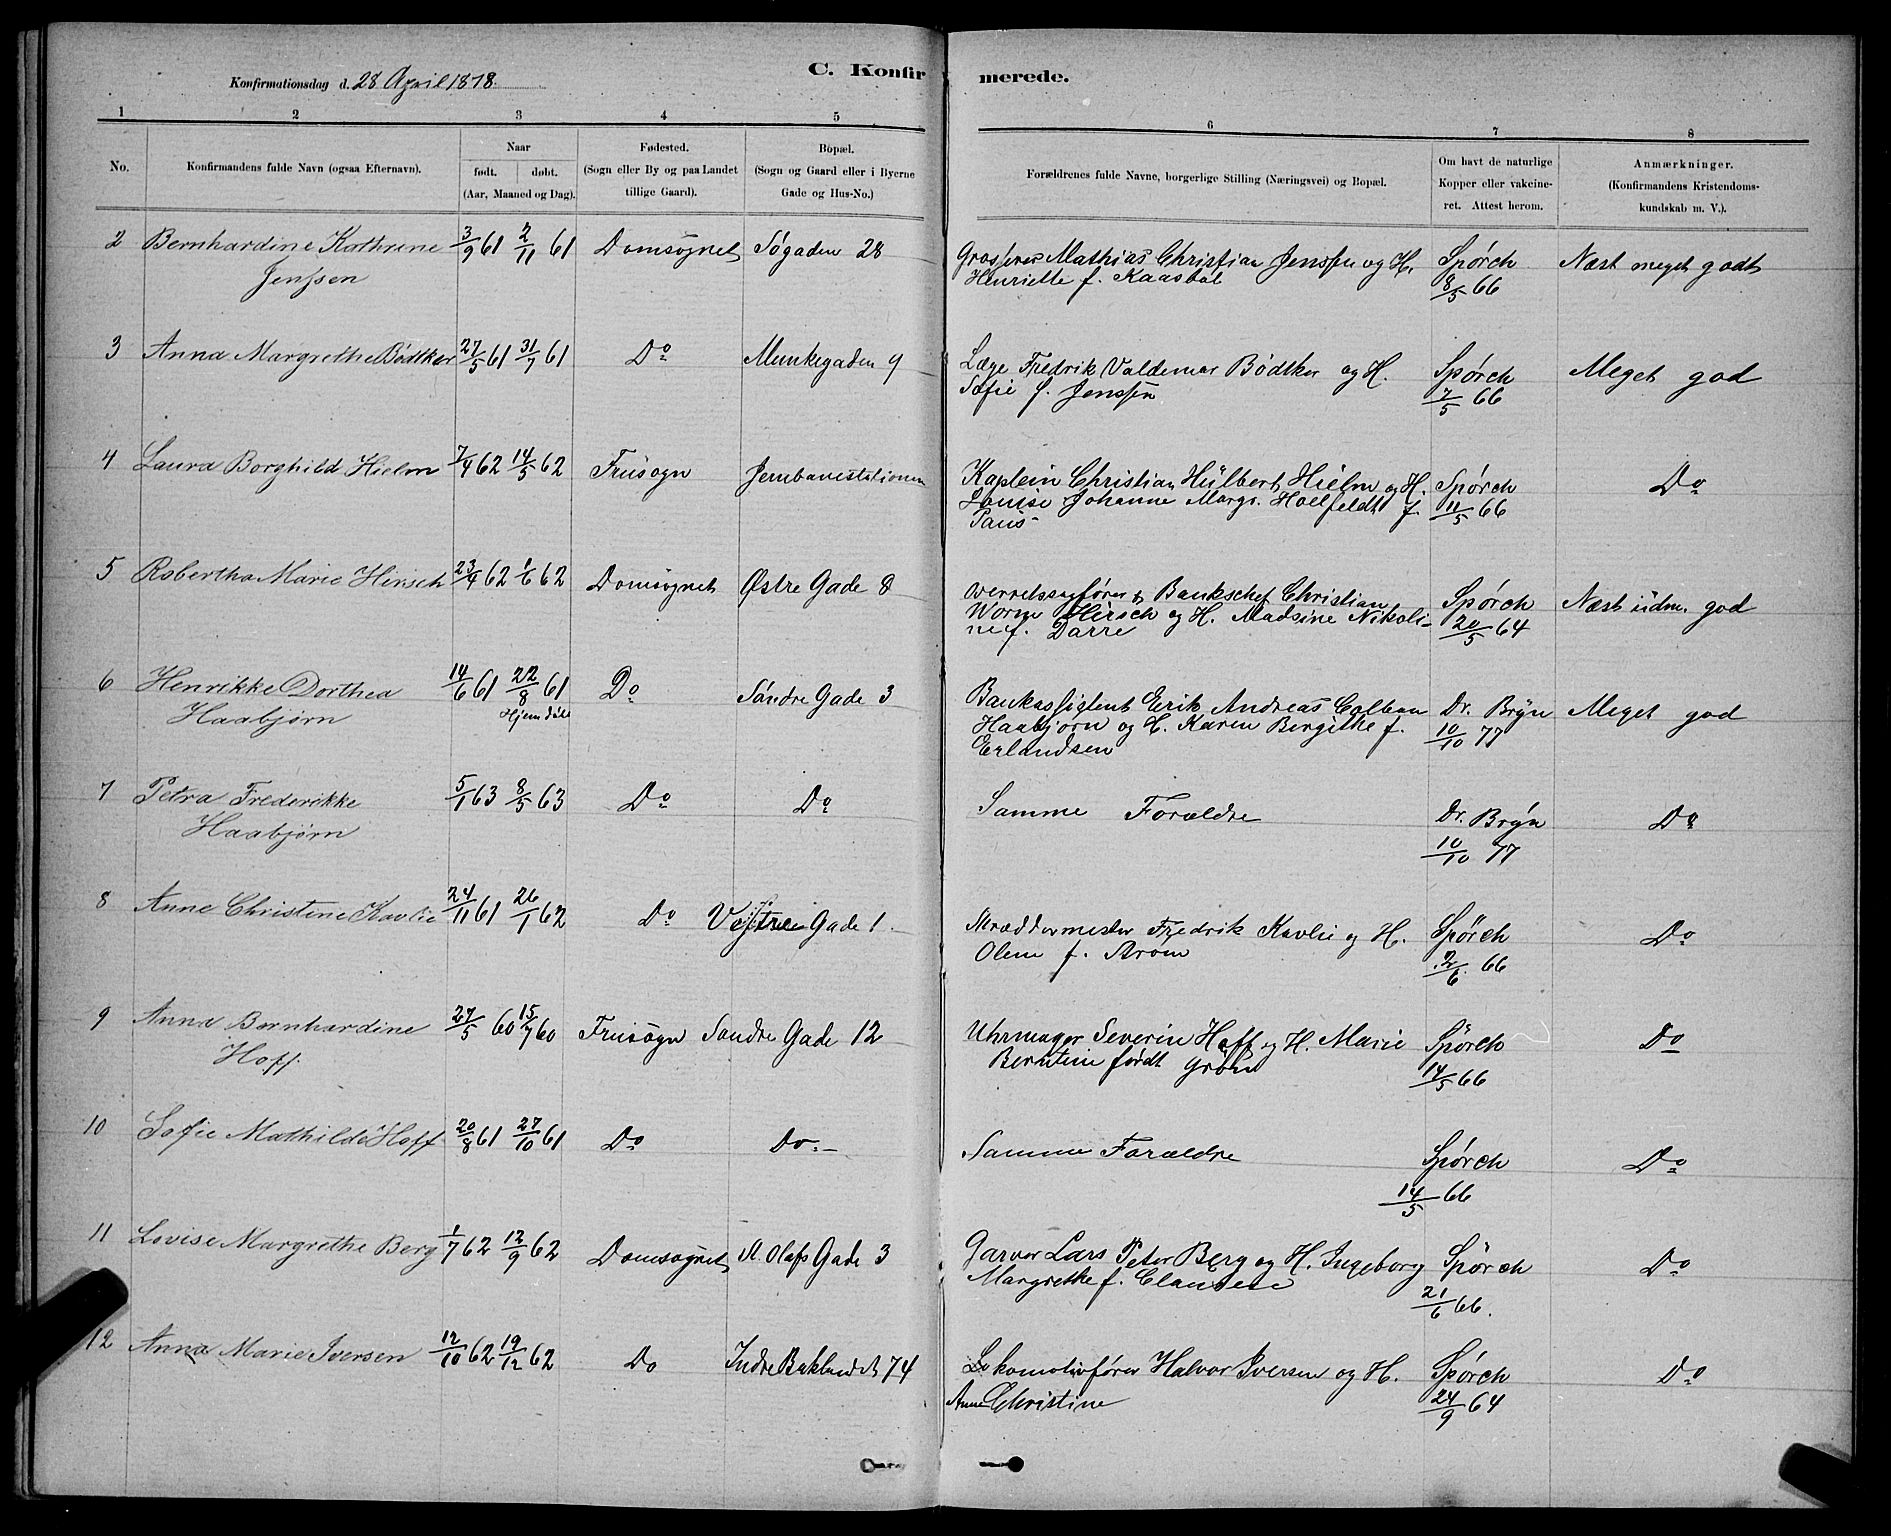 C. Konfirmerede.
Konfirmationsdag d. 28 April 1878.
1 2 3 4 5 6 7 8
No. Konfirmandens fulde Navn (ogsaa Efternavn). Naar født. døbt. (Aar, Maaned og Dag). Fødested. (Sogn eller By og paa Landet tillige Gaard). Bopæl. (Sogn og Gaard eller i Byerne Gade og Hus-No.) Forældrenes fulde Navne, borgerlige Stilling (Næringsvei) og Bopæl. Om havt de naturlige Kopper eller vakcineret. Attest herom. Anmærkninger. (Konfirmandens Kristendomskundskab m. V.).
2 Bernhardine Kathrine 3/9 61 2/11 61 Domsognet Søgaden 28 Mathias Christian Jenssen og H. Spørch Næst meget godt
Jenssen Henriette f. Kaasbøl 8/5 66
3 Anna Margrethe Bødtker 27/5 61 31/7 61 Do Munkegaden 9 Læge Fredrik Valdemar Bødtker og H. Spørch Meget god
Sofie f. Jenssen 7/5 66
4 Laura Borghild Hielm 7/4 62 14/5 62 Fruesogn Jernbanestationen Kaptein Christian Hülbert Hielm og H. Spørch Do
Louise Johanne Margr. Hoelfeldt f. 11/5 66
Paus
5 Robertha Marie Hirsch 23/4 62 1/6 62 Domsognet Østre Gade 8 Overretssagfører & Bankschef Christian Spørch Næst udm. god
Worm Hirsch og H. Madsine Nikoli- 20/5 64
ne f. Darre
6 Henrikke Dorthea 14/6 61 22/8 61 Do Søndre Gade 3 Bankassistent Erik Andreas Colban Dr. Bryn Meget god
Haabjørn Hjemdøbt Haabjørn og H. Karen Bergithe f. 10/10 77
Erlandsen
7 Petra Frederikke 5/1 63 8/5 63 Do Do Samme Forældre Dr. Bryn Do
Haabjørn 10/10 77
8 Anne Christine Kavlie 24/11 61 26/1 62 Do Vestre Gade 1. Skræddermester Fredrik Kavlie og H. Spørch Do
Oline f. Strøm 2/6 66
9 Anna Bernhardine 27/5 60 15/7 60 Fruesogn Søndre Gade 12 Uhrmager Severin Hoff og H. Marie Spørch Do
Hoff Berntine født Grøn 14/5 66
10 Sofie Mathilde Hoff 20/8 61 27/10 61 Do Do Samme Forældre Spørch Do
14/5 66
11 Lovise Margrethe Berg 1/7 62 12/9 62 Domsognet St. Olafs Gade 3 Garver Lars Peter Berg og H. Ingeborg Spørch Do
Margrethe f. Clausen 21/6 66.
12 Anna Marie Iversen 12/10 62 19/12 62 Do Indre Baklandet 74 Lokomotivfører Halvor Iversen og H. Spørch Do
Anne Christine 24/9 64